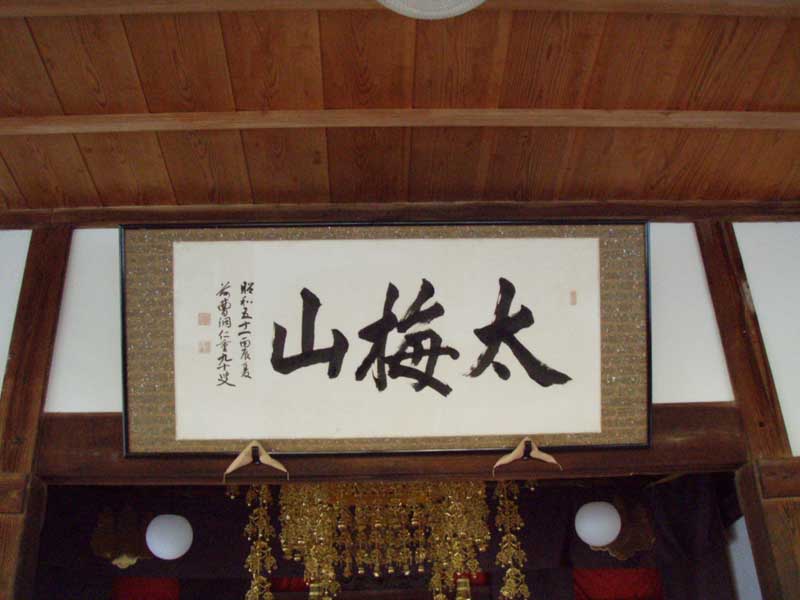 太梅山
昭和五十一丙辰夏
九十叟